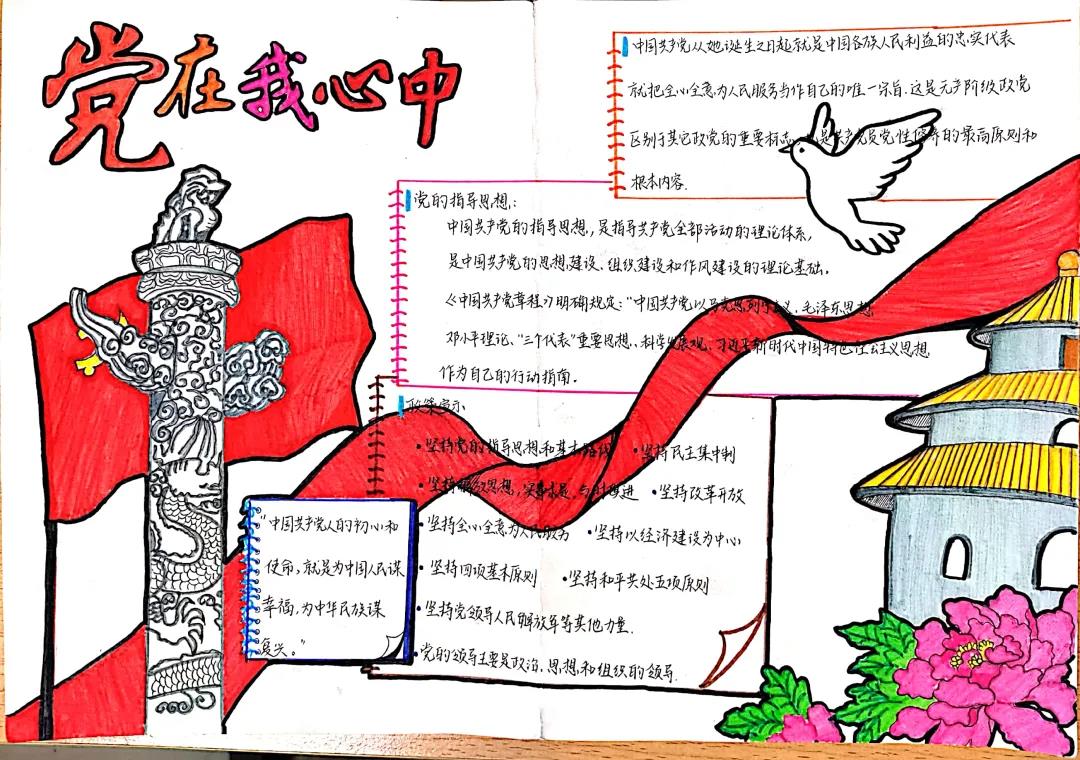 党在我心中
中国共产党从她诞生之日起就是中国各族人民利益的忠实代表
就把全心全意为人民服务当作自己的唯一宗旨.这是无产阶级政党
区别于其它政党的重要标志,也是共产党员党性修养的最高原则和
根本内容.
党的指导思想:
中国共产党的指导思想,是指导共产党全部活动的理论体系,
是中国共产党的思想建设、组织建设和作风建设的理论基础。
《中国共产党章程》明确规定:"中国共产党以马克思列宁主义、毛泽东思想、
邓小平理论、"三个代表"重要思想、科学发展观、习近平新时代中国特色社会主义思想
作为自己的行动指南。
政策宣示
•坚持党的指导思想和基本路线 •坚持民主集中制
•坚持解放思想,实事求是,与时俱进 •坚持改革开放
•坚持全心全意为人民服务 •坚持以经济建设为中心
•坚持四项基本原则 •坚持和平共处五项原则
•坚持党领导人民解放军等其他力量.
•党的领导主要是政治、思想和组织的领导.
"中国共产党人的初心和
使命,就是为中国人民谋
幸福,为中华民族谋
复兴。"